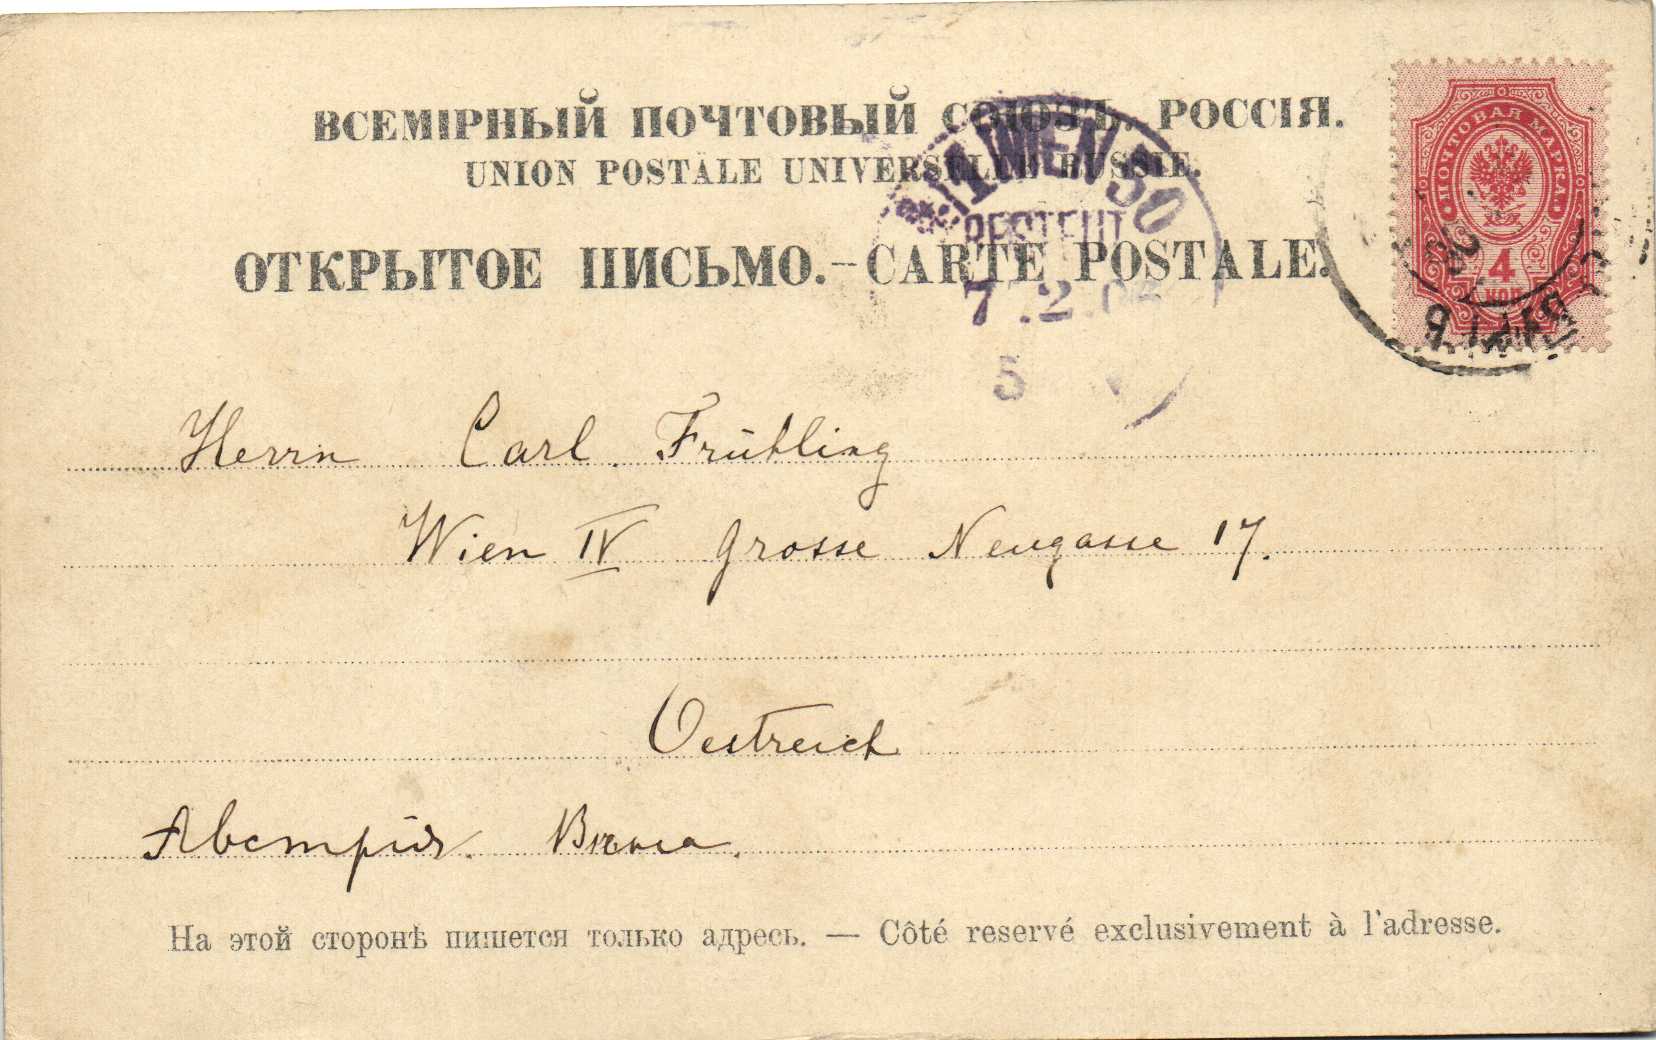 ВСЕМІРНЫЙ ПОЧТОВЫЙ СОЮЗЪ. РОССІЯ.
UNION POSTALE UNIVERSELLE RUSSIE.
ОТКРЫТОЕ ПИСЬМО. — CARTE POSTALE.
ПОЧТОВАЯ МАРКА
4
КОП
WIEN 50
BESTELLT
7.2.0
5
Herrn Carl Frühling
Wien IV Grosse Neugasse 17.
Oestreich
Австрія. Вѣна.
На этой сторонѣ пишется только адресъ. — Côté reservé exclusivement à l'adresse.